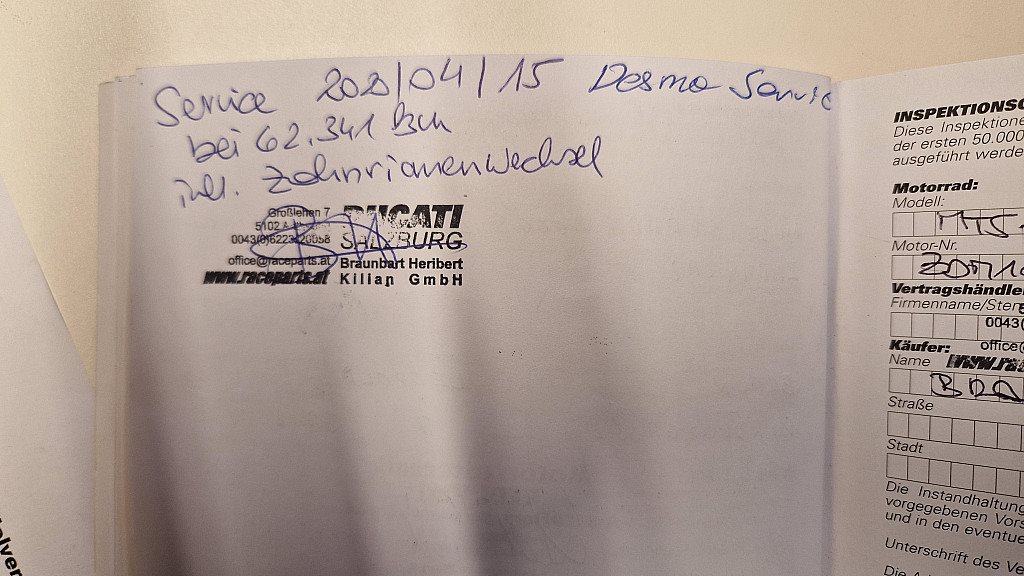 Service 2020/04/15 Desmo Service
bei 62.341 km
inkl. Zahnriemenwechsel
Großlehen 7
5102
0043(0)6223/20058
office@raceparts.at
www.raceparts.at
DUCATI
SALZBURG
Braunbart Heribert
Kilian GmbH
INSPEKTIONSC
Diese Inspektione
der ersten 50.000
ausgeführt werde
Motorrad:
Modell:
MTS
Motor-Nr.
ZDM1
Vertragshändle
Firmenname/Stem
0043(
office@
Käufer:
Name
www.ra
BRA
Straße
Stadt
Die Instandhaltun
vorgegebenen Vors
und in den eventue
Unterschrift des Ve